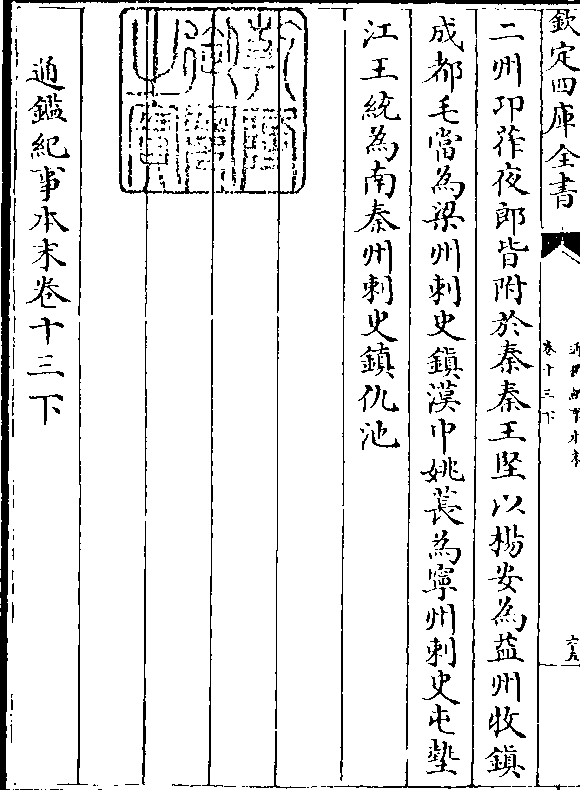 欽定四庫全書
通鑑紀事本末
卷十三下
六五
二州卭莋夜郎皆附於秦秦王堅以楊安為益州牧鎮
成都毛當為梁州刺史鎮漢中姚萇為寧州刺史屯墊
江王統為南秦州刺史鎮仇池
通鑑紀事本末卷十三下